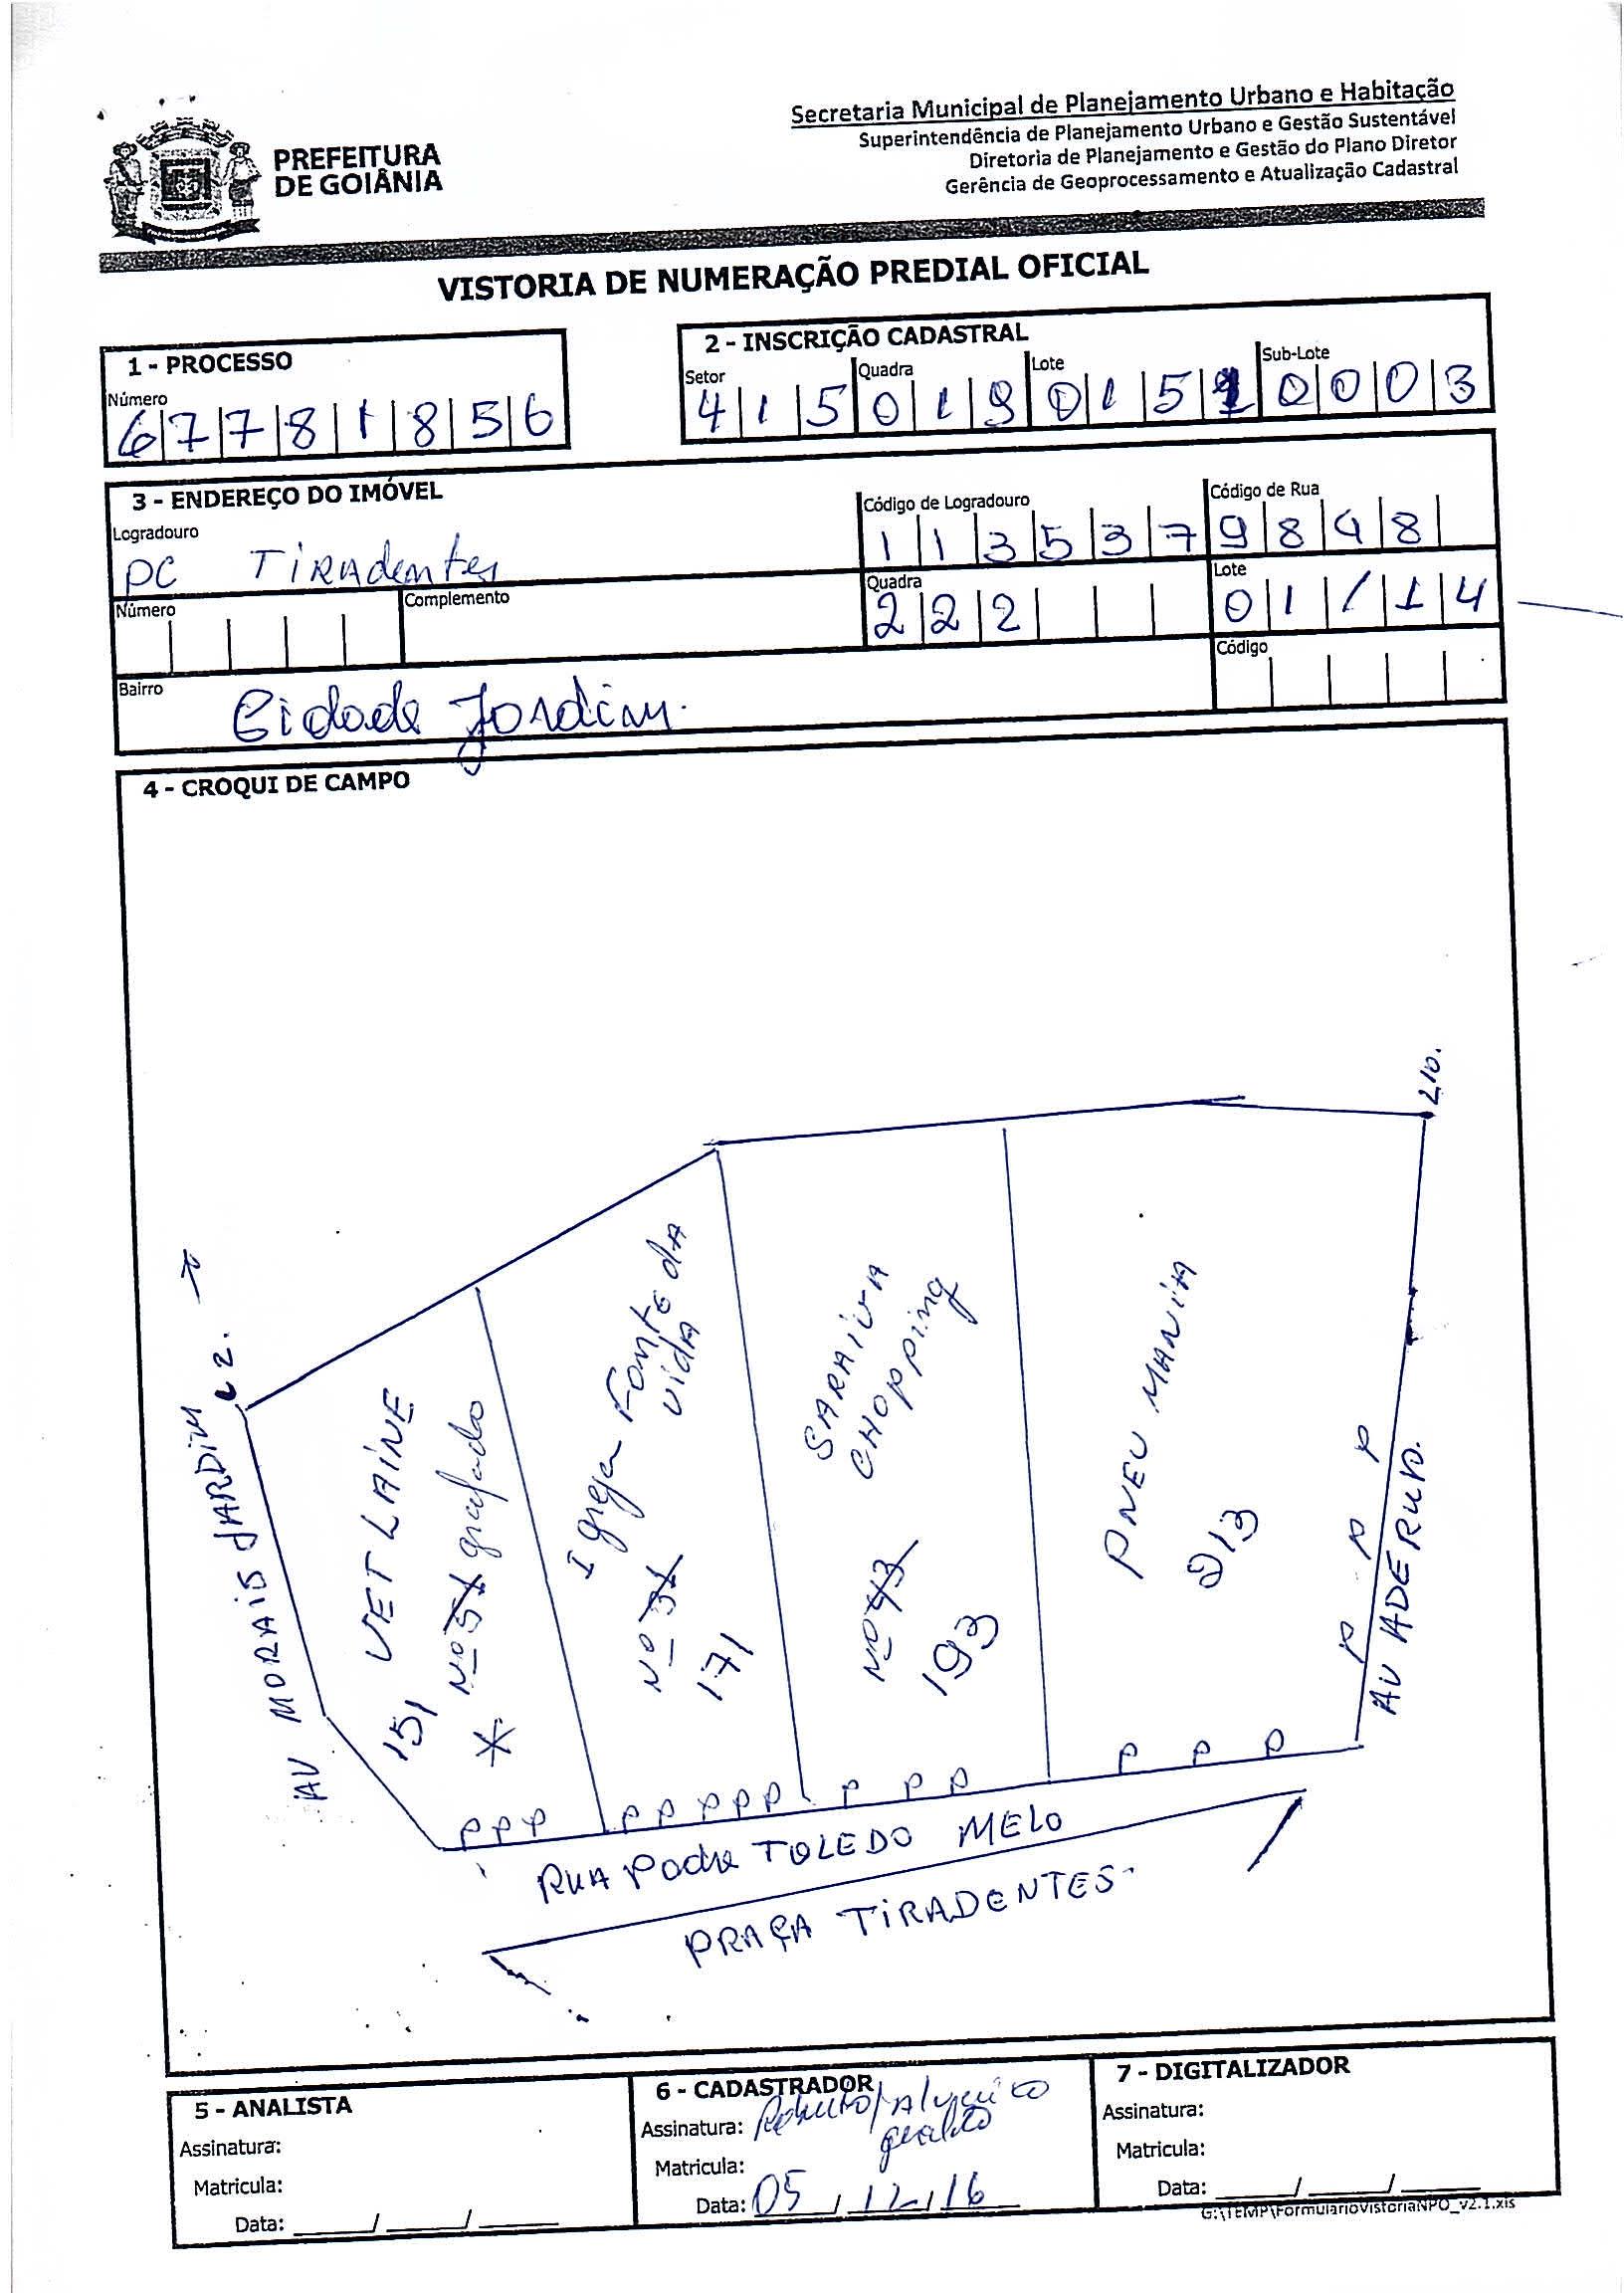 Secretaria Municipal de Planejamento Urbano e Habitação
Superintendência de Planejamento Urbano e Gestão Sustentável
Diretoria de Planejamento e Gestão do Plano Diretor
Gerência de Geoprocessamento e Atualização Cadastral
PREFEITURA
DE GOIÂNIA
VISTORIA DE NUMERAÇÃO PREDIAL OFICIAL
1 - PROCESSO
Número
67781856
2 - INSCRIÇÃO CADASTRAL
Setor Quadra Lote Sub-Lote
415 019 0151 0003
3 - ENDEREÇO DO IMÓVEL
Logradouro Código de Logradouro Código de Rua
PC TiRAdentes 113537 9848
Número Complemento Quadra Lote
222 01/14
Bairro Código
Cidade Jardim.
4 - CROQUI DE CAMPO
L10.
L2.
AV MORAiS JARDiM
VET LAiNE
Nº 51 grafado
151
Igreja Fonte dA
vidA
Nº 31
171
SARAiVA
CHOPPing
Nº 43
193
PNEU MANiA
213
P P P P
AV ADERUP.
P P P P P P P P P P P P P P
RUA Padre TOLEDO MELO
PRAÇA TiRADENTES
5 - ANALISTA
Assinatura:
Matricula:
Data: ___/___/___
6 - CADASTRADOR
Assinatura:
geraldo
Matricula:
Data: 05/12/16
7 - DIGITALIZADOR
Assinatura:
Matricula:
Data: ___/___/___
G:\TEMP\FormularioVistoriaNPO_v2.1.xls